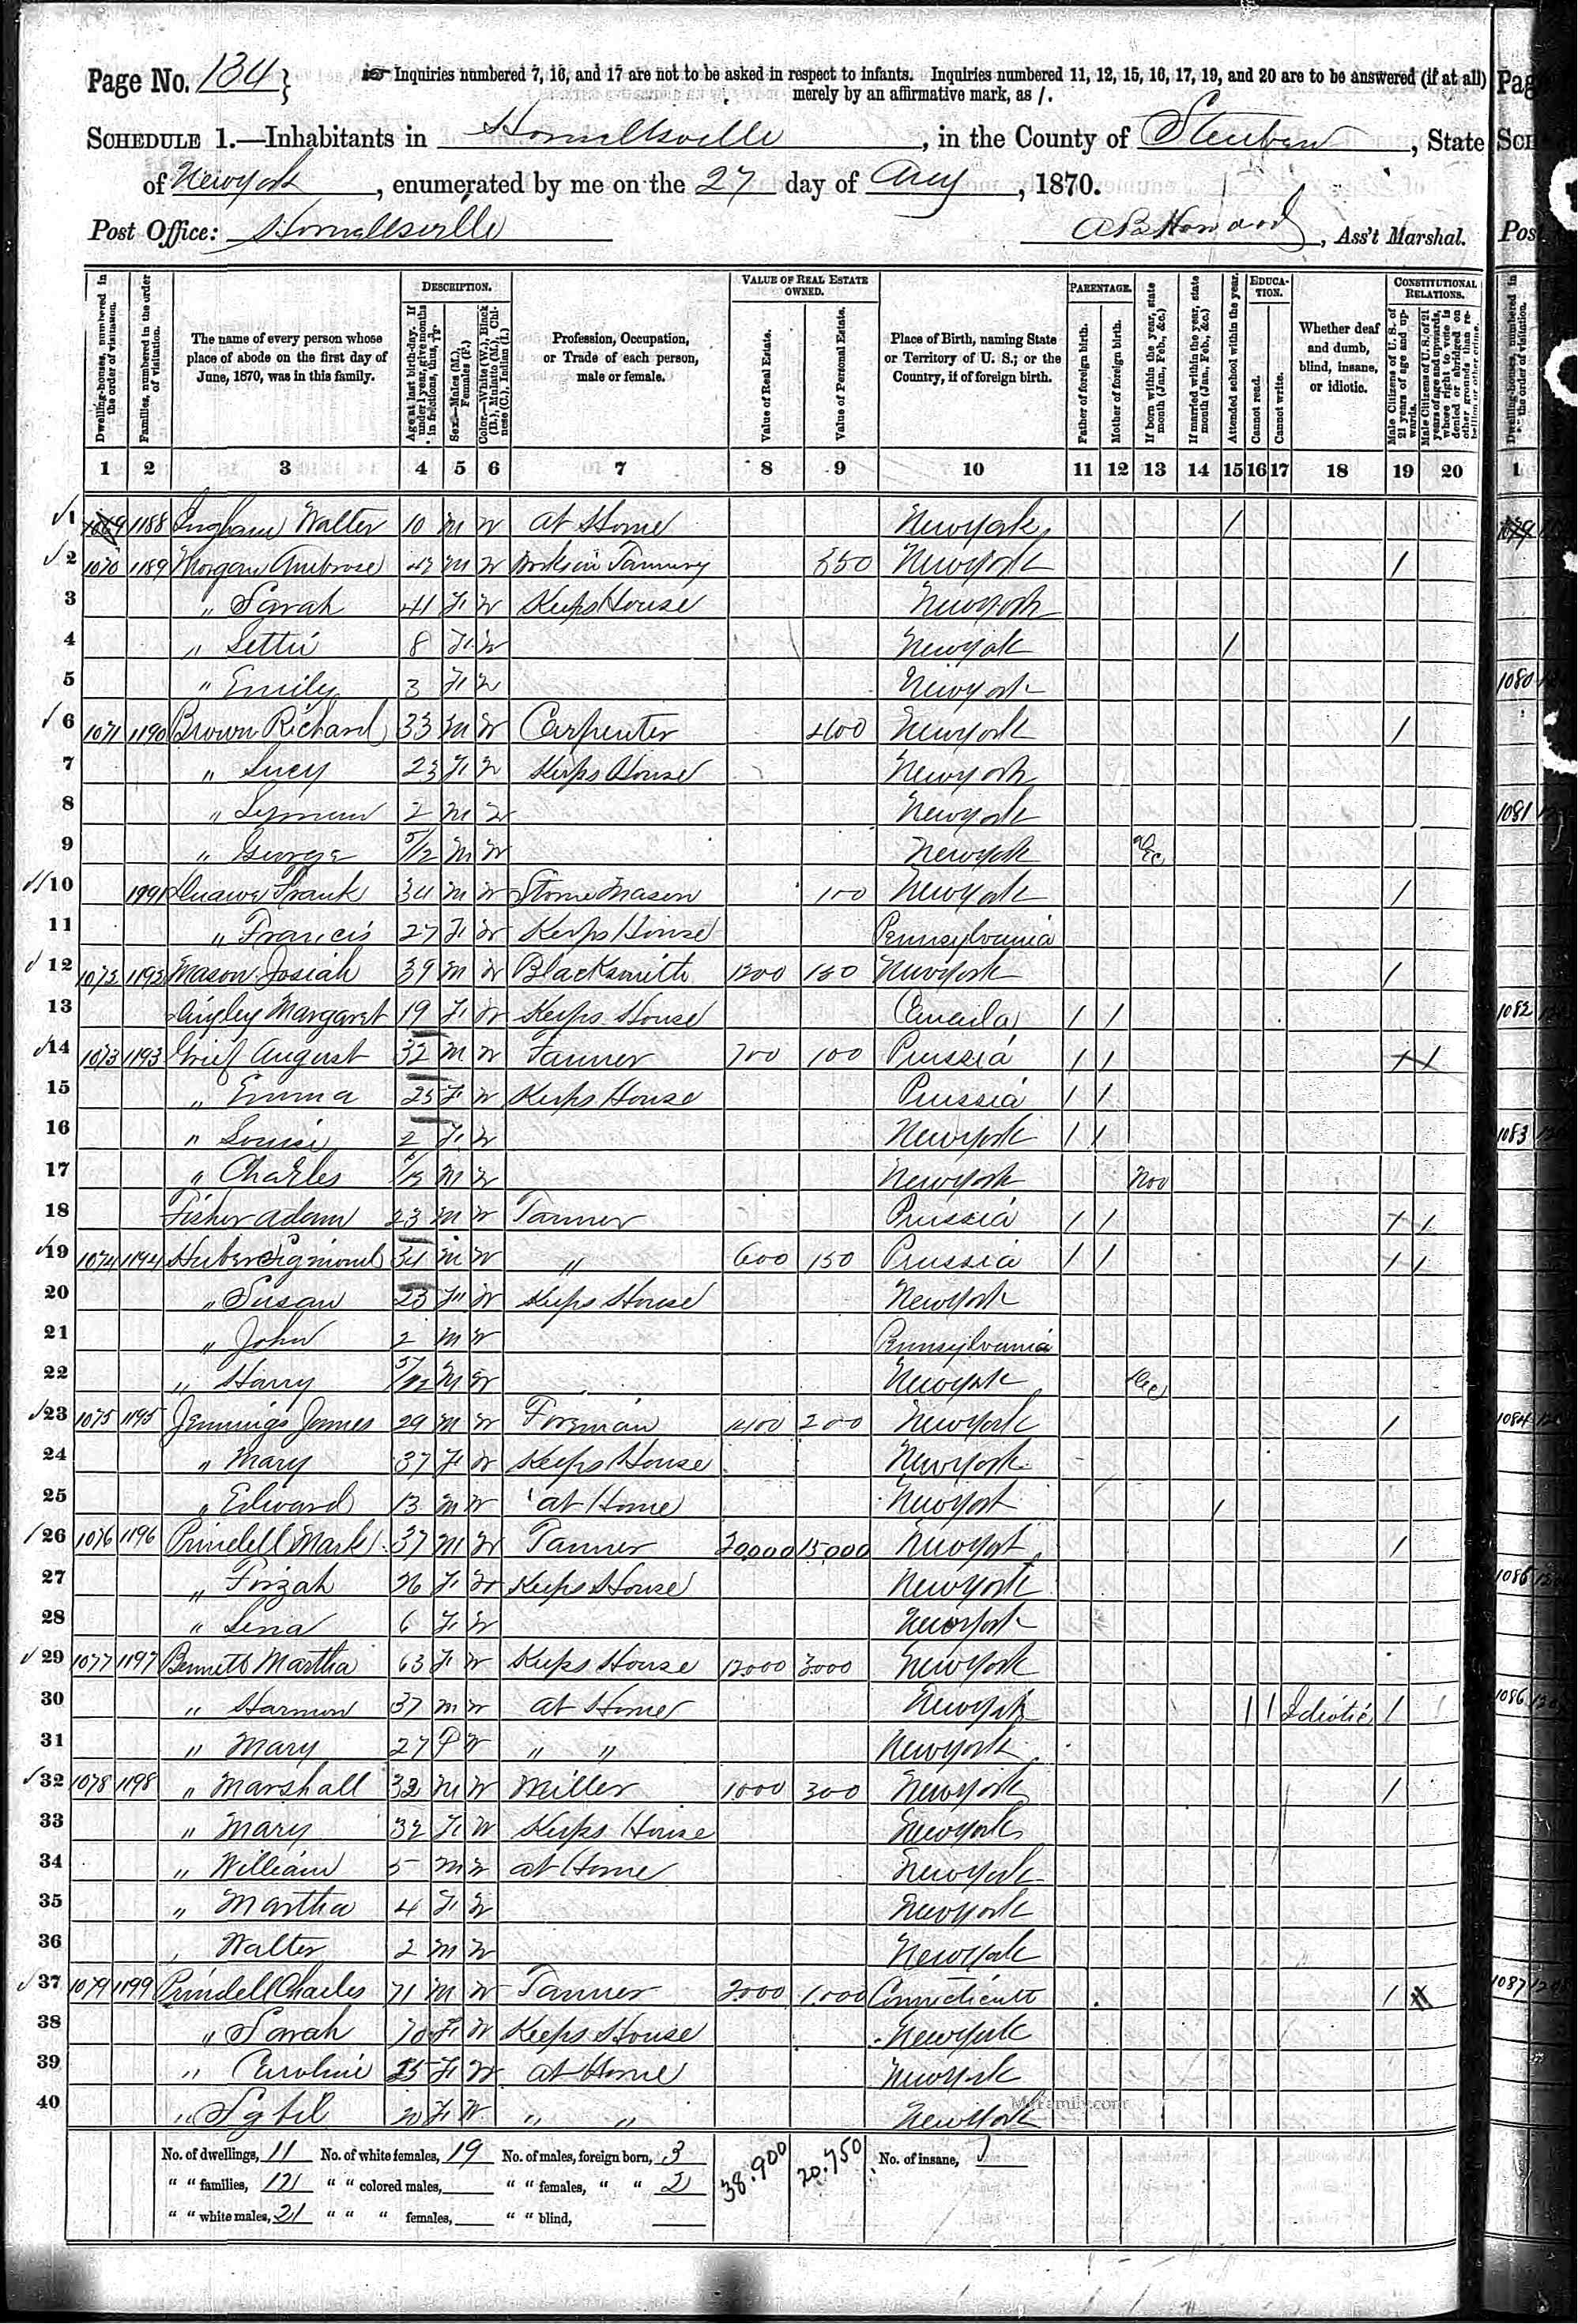 Page No. 134
Inquiries numbered 7, 16, and 17 are not to be asked in respect to infants. Inquiries numbered 11, 12, 15, 16, 17, 19, and 20 are to be answered (if at all)
merely by an affirmative mark, as /.
SCHEDULE 1.—Inhabitants in Hornellsville, in the County of Steuben, State
of New York, enumerated by me on the 27 day of Aug, 1870.
Post Office: Hornellsville
Howard, Ass't Marshal.
Dwelling-houses, numbered in the order of visitation.
Families, numbered in the order of visitation.
The name of every person whose place of abode on the first day of June, 1870, was in this family.
DESCRIPTION.
Age at last birth-day. If under 1 year, give months in fractions, thus,
Sex.—Males (M.), Females (F.)
Color.—White (W.), Black (B.), Mulatto (M.), Chinese (C.), Indian (I.)
Profession, Occupation, or Trade of each person, male or female.
VALUE OF REAL ESTATE OWNED.
Value of Real Estate.
Value of Personal Estate.
Place of Birth, naming State or Territory of U. S.; or the Country, if of foreign birth.
PARENTAGE.
Father of foreign birth.
Mother of foreign birth.
If born within the year, state month (Jan., Feb., &c.)
If married within the year, state month (Jan., Feb., &c.)
Attended school within the year.
EDUCATION.
Cannot read.
Cannot write.
Whether deaf and dumb, blind, insane, or idiotic.
CONSTITUTIONAL RELATIONS.
Male Citizens of U. S. of 21 years of age and upwards.
Male Citizens of U. S. of 21 years of age and upwards, whose right to vote is denied or abridged on other grounds than rebellion or other crime.
1 2 3 4 5 6 7 8 9 10 11 12 13 14 15 16 17 18 19 20
1 1069 1188 Ingham Walter 10 M W at Home New York /
2 1070 1189 Morgan Ambrose M W Works in Tannery New York /
3 " Sarah 41 F W Keeps House New York
4 " Lettie 8 F W New York /
5 " Emily 3 F W New York
6 1071 1190 Brown Richard 33 M W Carpenter 400 New York /
7 " Lucy 23 F W Keeps House New York
8 " Lyman 2 M W New York
9 " George 5/12 M W New York Dec
10 1991 Frank 34 M W Stone Mason 100 New York /
11 " Francis 27 F W Keeps House Pennsylvania
12 1072 1192 Mason Josiah 39 M W Blacksmith 1200 150 New York /
13 Margaret 19 F W Keeps House Canada / /
14 1073 1193 Grief August 32 M W Tanner 700 100 Prussia / / / /
15 " Emma 25 F W Keeps House Prussia / /
16 " Louisi 2 F W New York / /
17 " Charles M W New York Nov
18 Fisher Adam 23 M W Tanner Prussia / / / /
19 1074 1194 Huber Sigmond 34 M W " 600 150 Prussia / / / /
20 " Susan 23 F W Keeps House New York
21 " John 2 M W Pennsylvania
22 " Harry 5/12 M W New York Dec
23 1075 1195 Jennings James 29 M W Foreman 1400 200 New York /
24 " Mary 37 F W Keeps House New York
25 " Edward 13 M W at Home New York /
26 1076 1196 Prindell Mark 37 M W Tanner 20,000 15,000 New York /
27 " Firzah 26 F W Keeps House New York
28 " Lena 6 F W New York
29 1077 1197 Bennett Martha 63 F W Keeps House 12000 3000 New York
30 " Harmon 37 M W at Home New York / / Idiotic /
31 " Mary 27 F W " " New York
32 1078 1198 " Marshall 32 M W Miller 1000 300 New York /
33 " Mary 32 F W Keeps House New York
34 " William 5 M W at Home New York
35 " Martha 4 F W New York
36 " Walter 2 M W New York
37 1079 1199 Prindell Charles 71 M W Tanner 2000 1000 Connecticutt /
38 " Sarah 70 F W Keeps House New York
39 " Caroline F W at Home New York
40 " Sybil 20 F W " " New York
MyFamily.com
No. of dwellings, 11 No. of white females, 19 No. of males, foreign born, 3 38.900 20.750 No. of insane, 1
" " families, " " colored males, " " females, " " 2
" " white males, 21 " " " females, " " blind,